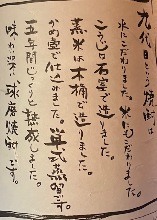 九代目という焼酎は
水にこだわりました。米にもこだわりました。
こうじは石室で造り、
蒸米は木桶で造りました。
かめ壺で仕込みました。単式蒸留です。
五年間じっくりと熟成しました。
味わい深い球磨焼酎です。